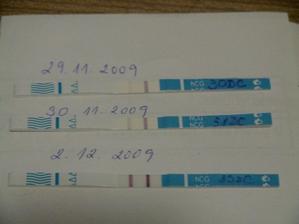 29.11.2009
HCG 30DC
30.11.2009
HCG 31DC
2.12.2009
HCG 33DC